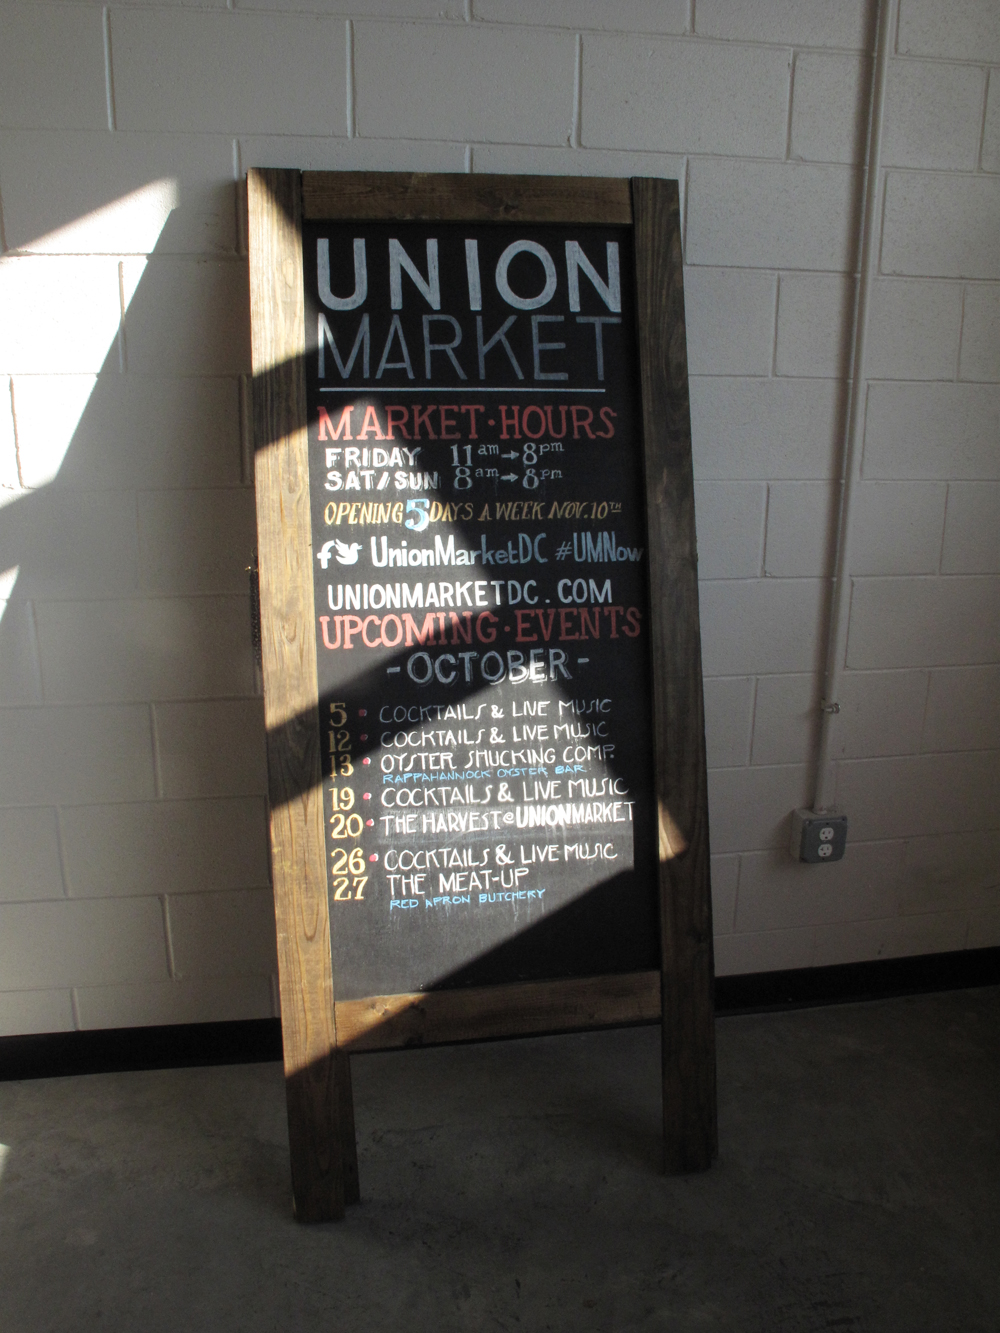 UNION
MARKET
MARKET·HOURS
FRIDAY 11am→8pm
SAT/SUN 8am→8pm
OPENING 5 DAYS A WEEK NOV. 10TH
UnionMarketDC #UMNow
UNIONMARKETDC.COM
UPCOMING·EVENTS
-OCTOBER-
5 • COCKTAILS & LIVE MUSIC
12 • COCKTAILS & LIVE MUSIC
13 • OYSTER SHUCKING COMP.
RAPPAHANNOCK OYSTER BAR
19 • COCKTAILS & LIVE MUSIC
20 • THE HARVEST@UNIONMARKET
26 • COCKTAILS & LIVE MUSIC
27 THE MEAT-UP
RED APRON BUTCHERY